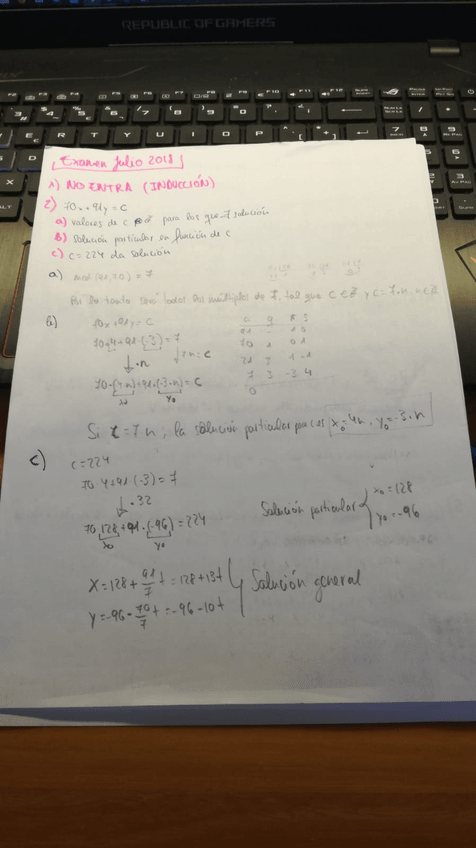 REPUBLIC OF GAMERS
[Examen Julio 2018]
1) NO ENTRA (INDUCCIÓN)
2) 70x+91y=c
a) valores de c para los que ∃ solución
b) solución particular en función de c
c) c=224 da solución
a) mcd(91,70)=7
Por lo tanto será todos los múltiplos de 7, tal que c∈Z y c=7·n, n∈Z
b) 70x+91y=c
70·4+91·(-3)=7
↓·n ↓7n=c
70·(4n)+91·(-3·n)=c
x₀ y₀
91 - 1 0
70 1 0 1
21 3 1 -1
7 3 -3 4
0
Si c=7n, la solución particular para es x₀=4n, y₀=-3·n
c) c=224
70·4+91·(-3)=7
↓·32
70·128+91·(-96)=224
x₀ y₀
Solución particular { x₀=128
y₀=-96
X=128+91/7 t=128+13t
Y=-96-70/7 t=-96-10t
Solución general